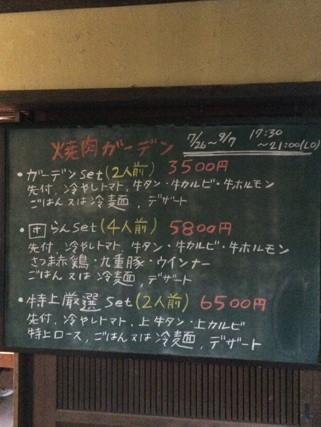 焼肉ガーデン 7/26〜9/7 17:30
〜21:00(LO)
・ガーデンset(2人前) 3500円
先付、冷やしトマト、牛タン・牛カルビ・牛ホルモン
ごはん又は冷麺、デザート
・団らんset(4人前) 5800円
先付、冷やしトマト、牛タン・牛カルビ・牛ホルモン
さつま赤鶏・九重豚・ウインナー
ごはん又は冷麺、デザート
・特上厳選set(2人前) 6500円
先付、冷やしトマト、上牛タン・上カルビ
特上ロース、ごはん又は冷麺、デザート